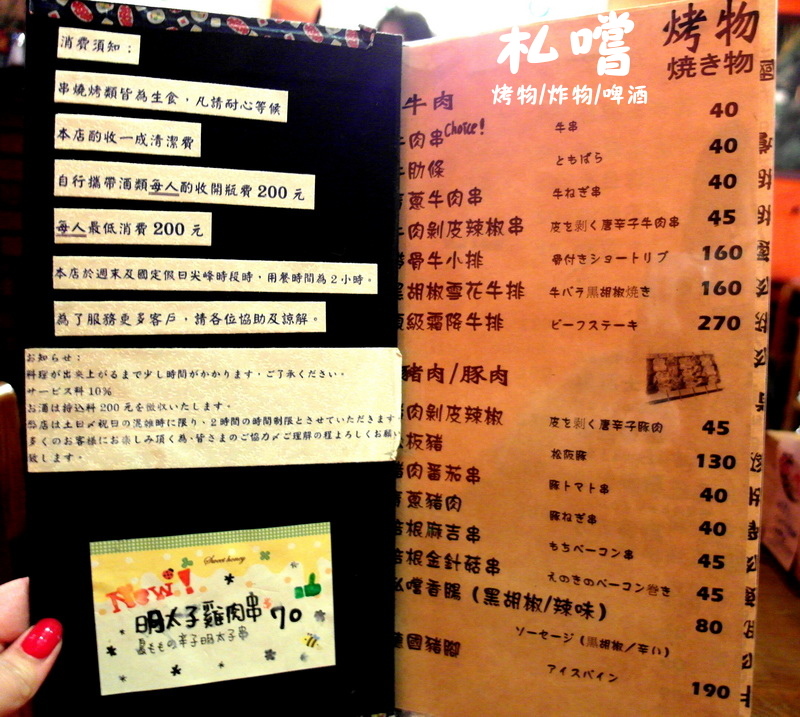 消費須知：
串燒烤類皆為生食，凡請耐心等候
本店酌收一成清潔費
自行攜帶酒類每人酌收開瓶費 200 元
每人最低消費 200 元
本店於週末及國定假日尖峰時段時，用餐時間為 2 小時。
為了服務更多客戶，請各位協助及諒解。
お知らせ：
料理が出來上がるまで少し時間がかかります，ご了承ください。
サービス料 10%
お酒は持込料 200 元を徴収いたします。
当店は土日〆祝日の混雑時に限り、2 時間の時間制限とさせていただきます
多くのお客様にお楽しみ頂く為，皆さまのご協力〆ご理解の程よろしくお願い
致します。
Sweet honey
New!
明太子雞肉串 $70
もも 辛子明太子串
札嚐
烤物/炸物/啤酒
烤物
焼き物
牛肉
牛肉串 Choice! 牛串 40
牛肋條 ともばら 40
蔥牛肉串 牛ねぎ串 40
牛肉剝皮辣椒串 皮を剥く唐辛子牛肉串 45
骨牛小排 骨付きショートリブ 160
黑胡椒雪花牛排 牛バラ黒胡椒焼き 160
頂級霜降牛排 ビーフステーキ 270
豬肉/豚肉
肉剝皮辣椒 皮を剥く唐辛子豚肉 45
板豬 松阪豚 130
豬肉番茄串 豚トマト串 40
蔥豬肉 豚ねぎ串 40
培根麻吉串 もちベーコン串 45
培根金針菇串 えのきのベーコン巻き 45
札嚐香腸（黑胡椒/辣味） 80
ソーセージ（黒胡椒／辛い）
德國豬腳 アイスバイン 190